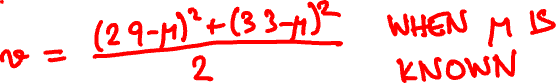 v = \frac{(29-μ)²+(33-μ)²}{2} WHEN μ IS
KNOWN